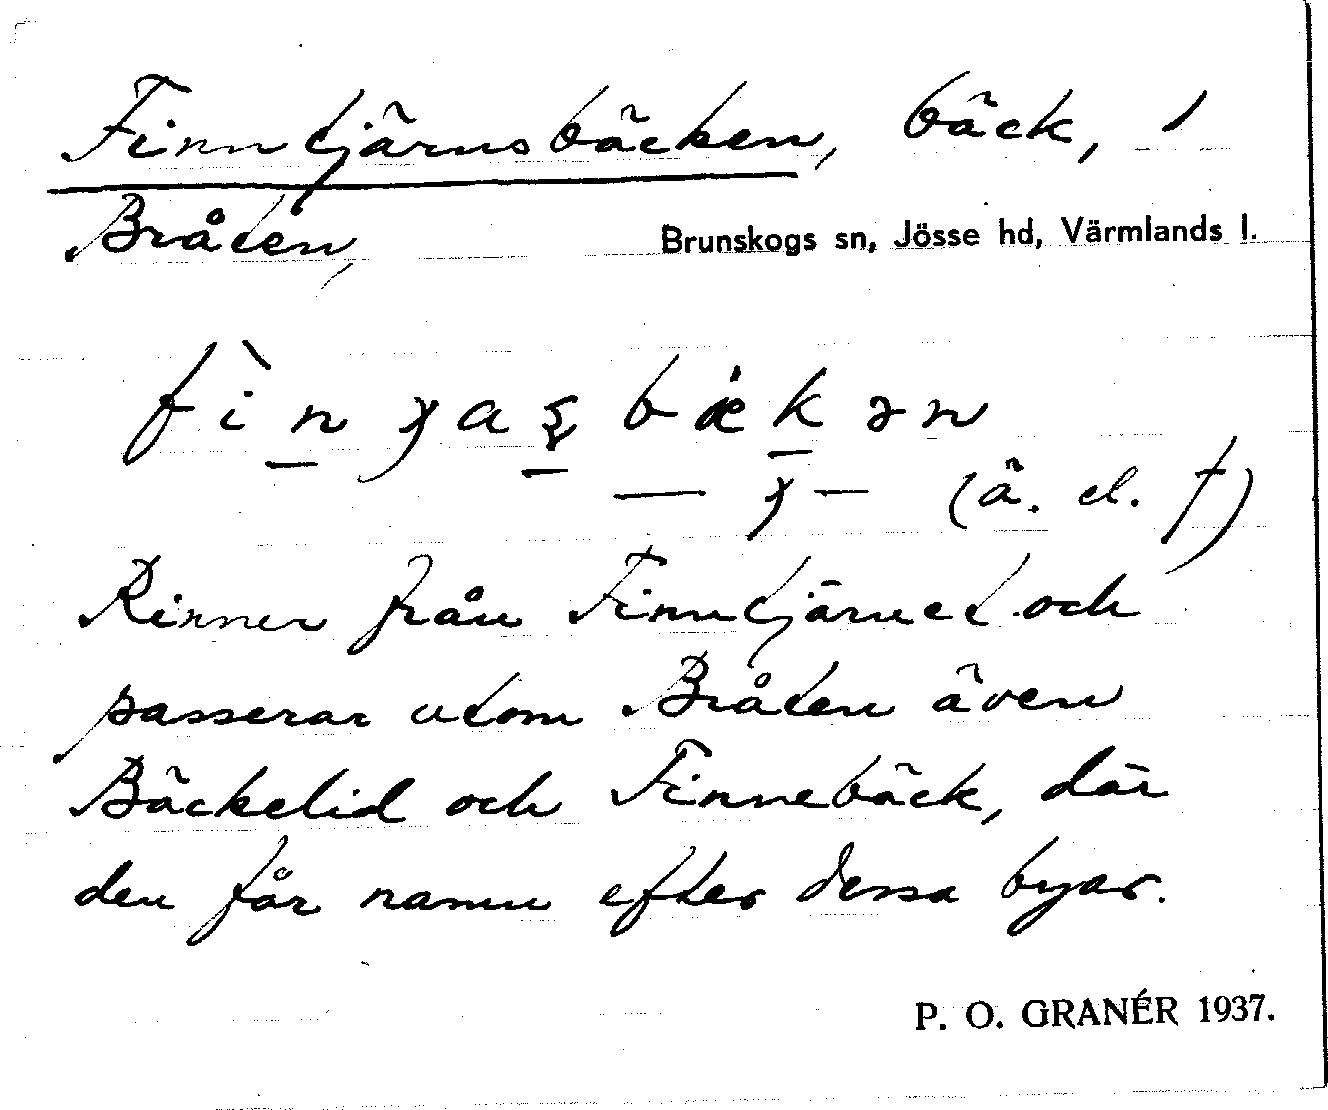 Finntjärnsbäcken, bäck, 1
Bråten, Brunskogs sn, Jösse hd, Värmlands l.
(ä. el. f)
Rinner från Finntjärnet och
passerar utom Bråten även
Bäckelid och Finnebäck, där
den får namn efter dessa byar.
P. O. GRANÉR 1937.